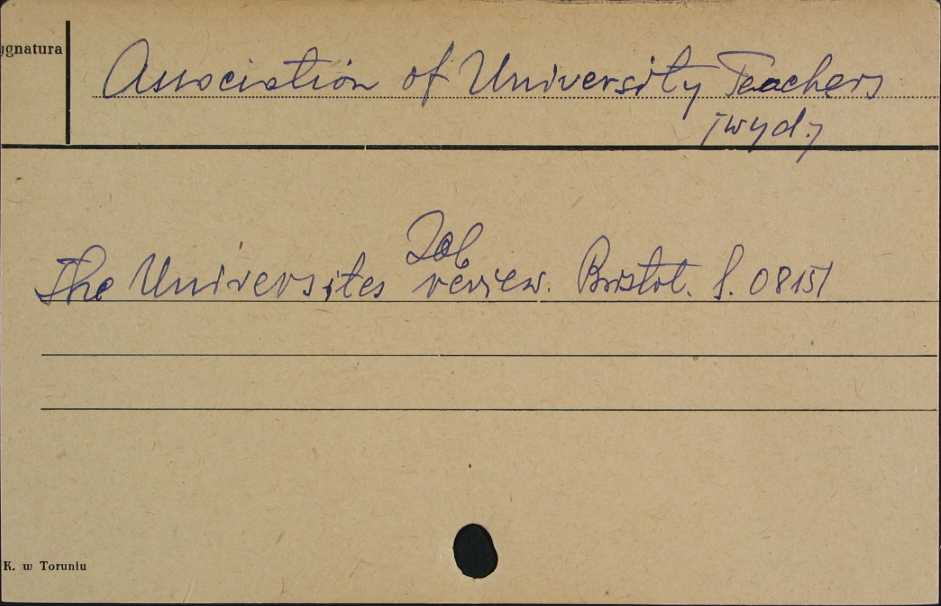 ygnatura
Association of University Teachers
[wyd.]
Zob
The Universites review. Bristol. S. 08151
K. w Toruniu